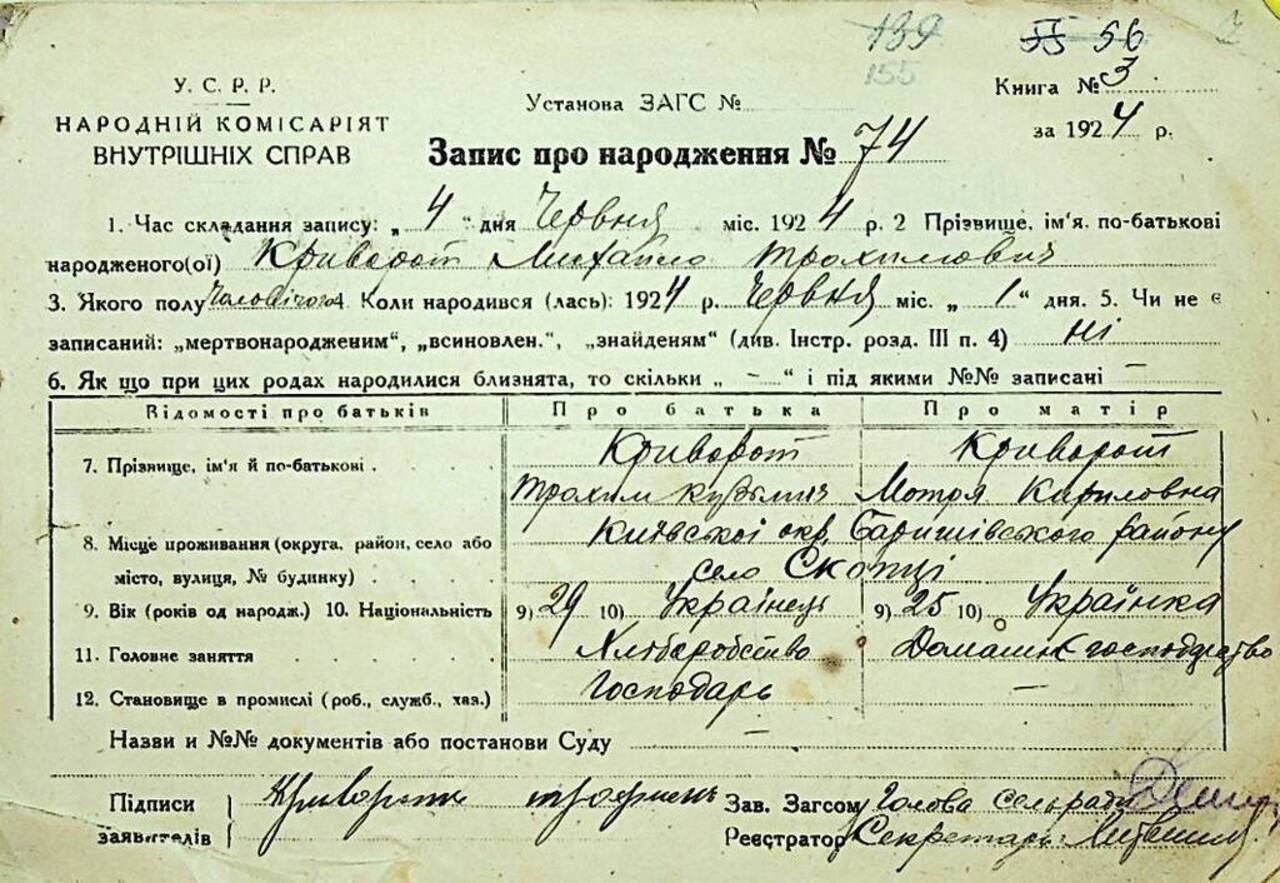 139
55 56
155
У. С. Р. Р.
НАРОДНІЙ КОМІСАРІЯТ
ВНУТРІШНІХ СПРАВ
Установа ЗАГС №
Книга № 3
за 1924 р.
Запис про народження № 74
1. Час складання запису: „ 4 “ дня Червня міс. 1924 р. 2 Прізвище, ім'я, по-батькові
народженого(ої) Криворот Михайло Трохимович
3. Якого полу Чоловічого 4. Коли народився (лась): 1924 р. Червня міс. „ 1 “ дня. 5. Чи не є
записаний: „мертвонародженим“, „всиновлен.“, „знайденям“ (див. Інстр. розд. III п. 4) ні
6. Як що при цих родах народилися близнята, то скільки „ — “ і під якими №№ записані —
Відомості про батьків Про батька Про матір
7. Прізвище, ім'я й по-батькові . . . . Криворот Криворот
Трохим Кузьмич Мотря Кириловна
8. Місце проживання (округа, район, село або Київської окр. Баришівського району
місто, вулиця, № будинку) . . . . село Скопці
9. Вік (років од народж.) 10. Національність 9) 29 10) Українець 9) 25 10) Українка
11. Головне заняття . . . . . Хліборобство Домашнє господарство
12. Становище в промислі (роб., служб., хаз.) Господарь —
Назви и №№ документів або постанови Суду —
Підписи Криворот Зав. Загсом Голова сельради
заявителів Реєстратор Секретарь